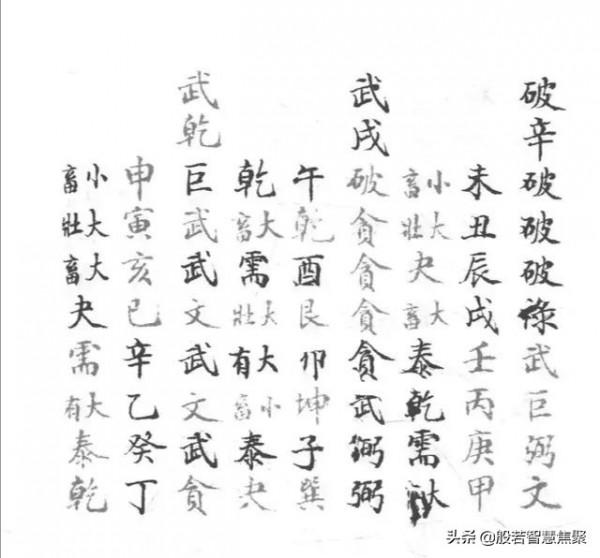 破辛破破破祿武巨弼文
未丑辰戌壬丙庚甲
小畜大壯夬大畜泰乾需大
武戌破貪貪貪貪武弼弼
午乾酉艮卯坤子巽
乾大畜需大壯大有小畜泰夬
武乾巨武武文武文武貪
申寅亥巳辛乙癸丁
小畜大壯大畜夬需大有泰乾
头条@般若智慧焦聚